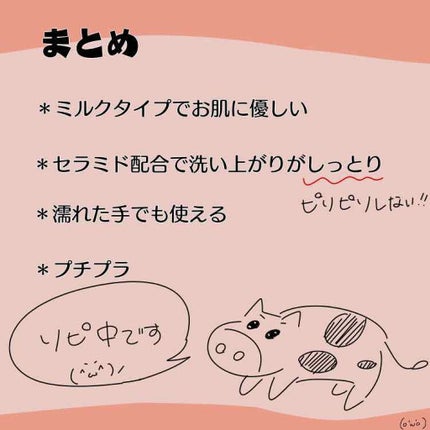 まとめ
*ミルクタイプでお肌に優しい
*セラミド配合で洗い上がりがしっとり
ピリピリしない!!
*濡れた手でも使える
*プチプラ
リピ中です
(^ω^)ノ
(oωo)